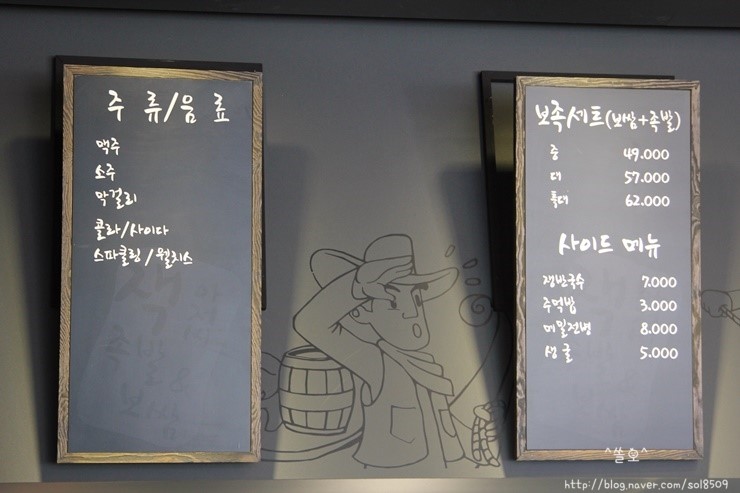 주 류/음 료
맥주
소주
막걸리
콜라/사이다
스파클링/웰치스
보족세트(보쌈+족발)
중 49.000
대 57.000
특대 62.000
사이드 메뉴
쟁반국수 7.000
주먹밥 3.000
메밀전병 8.000
생굴 5.000
^쏠오^
http://blog.naver.com/sol8509